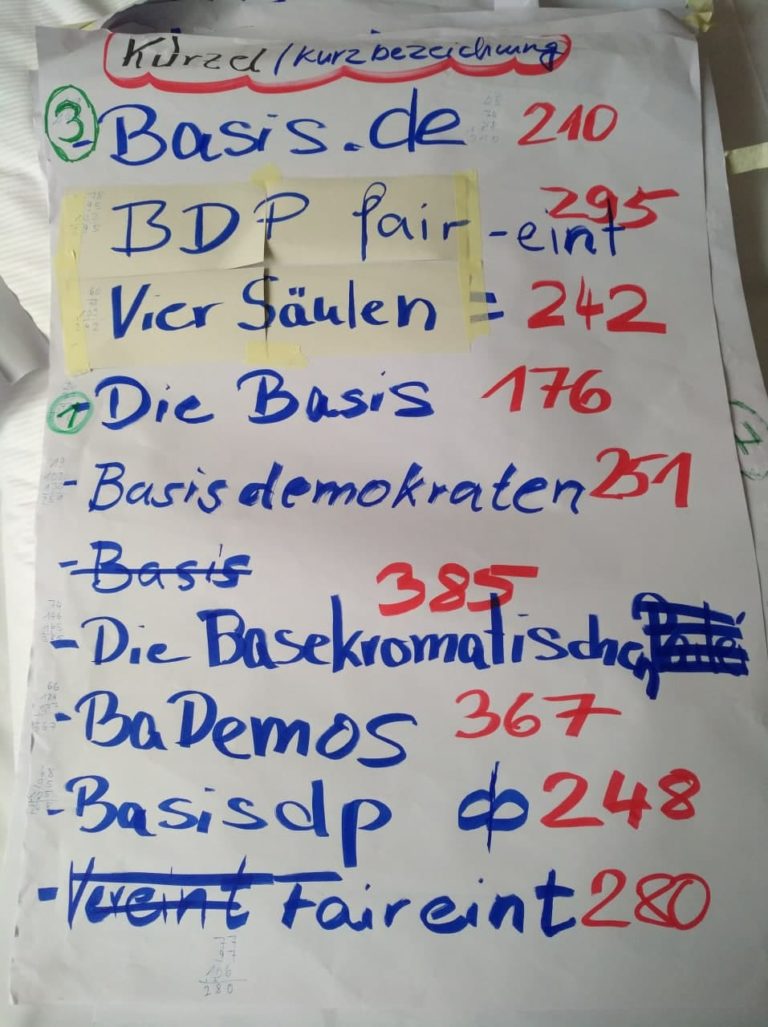 Kürzel/Kurzbezeichnung
③ - Basis.de 210
BDP fair-eint 295
Vier Säulen = 242
① - Die Basis 176
- Basisdemokraten 251
- Basis
- Die Basekromatische 385
- BaDemos 367
- Basisdp 248
- Vereint Faireint 280
280